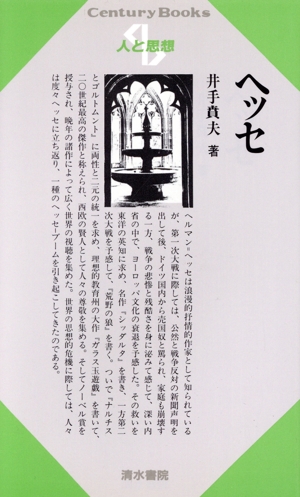 Century Books
人と思想
ヘッセ
井手賁夫 著
ヘルマン=ヘッセは浪漫的抒情的作家として知られている
が、第一次大戦に際しては、公然と戦争反対の新聞声明を
出して後、ドイツ国内から売国奴と罵られ、家庭も崩壊す
る一方、戦争の悲惨と残酷さを身に泌みて感じて、深い内
省の中で、ヨーロッパ文化の衰退を予感した。その救いを
東洋の英知に求め、名作『シッダルタ』を書き、一方第二
次大戦を予感して、『荒野の狼』を書く。ついで『ナルチス
とゴルトムント』に両性と二元の統一を求め、理想的教育州の大作『ガラス玉遊戯』を書いて、
二〇世紀最高の傑作と称えられ、西欧の賢人として人々の尊敬を集める。そしてノーベル賞を
授与され、晩年の諸作によって広く世界の視聴を集めた。世界の思想的危機に際しては、人々
は度々ヘッセに立ち返り、一種のヘッセ=ブームを引き起こしてきたのである。
清水書院